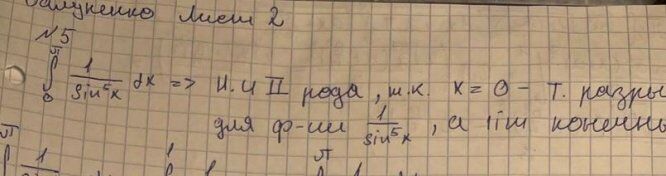 Лист 2
№5
∫₀^π 1/sin⁵x dx => Н.И II рода, т.к. x=0 - т. разры
для ф-ии 1/sin⁵x, а lim конечны